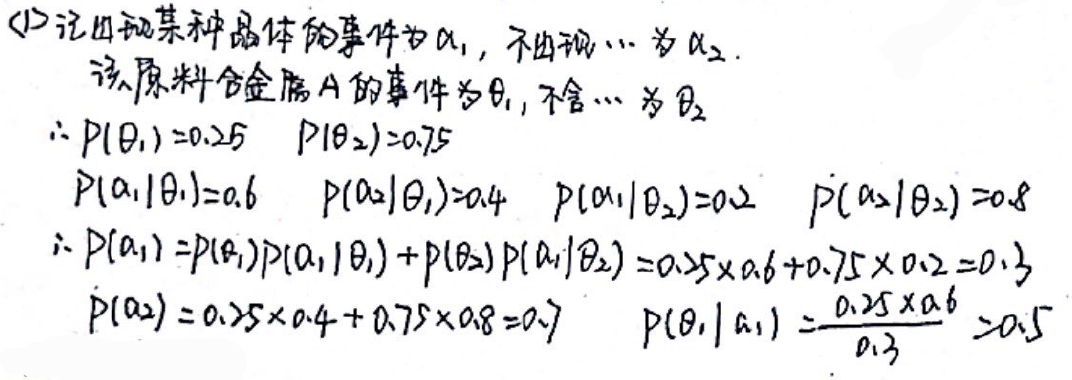 <1>记出现某种晶体的事件为a₁,不出现…为a₂.
该原料含金属A的事件为θ₁,不含…为θ₂
∴P(θ₁)=0.25 P(θ₂)=0.75
P(a₁|θ₁)=0.6 P(a₂|θ₁)=0.4 P(a₁|θ₂)=0.2 P(a₂|θ₂)=0.8
∴P(a₁)=P(θ₁)P(a₁|θ₁)+P(θ₂)P(a₁|θ₂)=0.25×0.6+0.75×0.2=0.3
P(a₂)=0.25×0.4+0.75×0.8=0.7 P(θ₁|a₁)=\frac{0.25×0.6}{0.3}=0.5